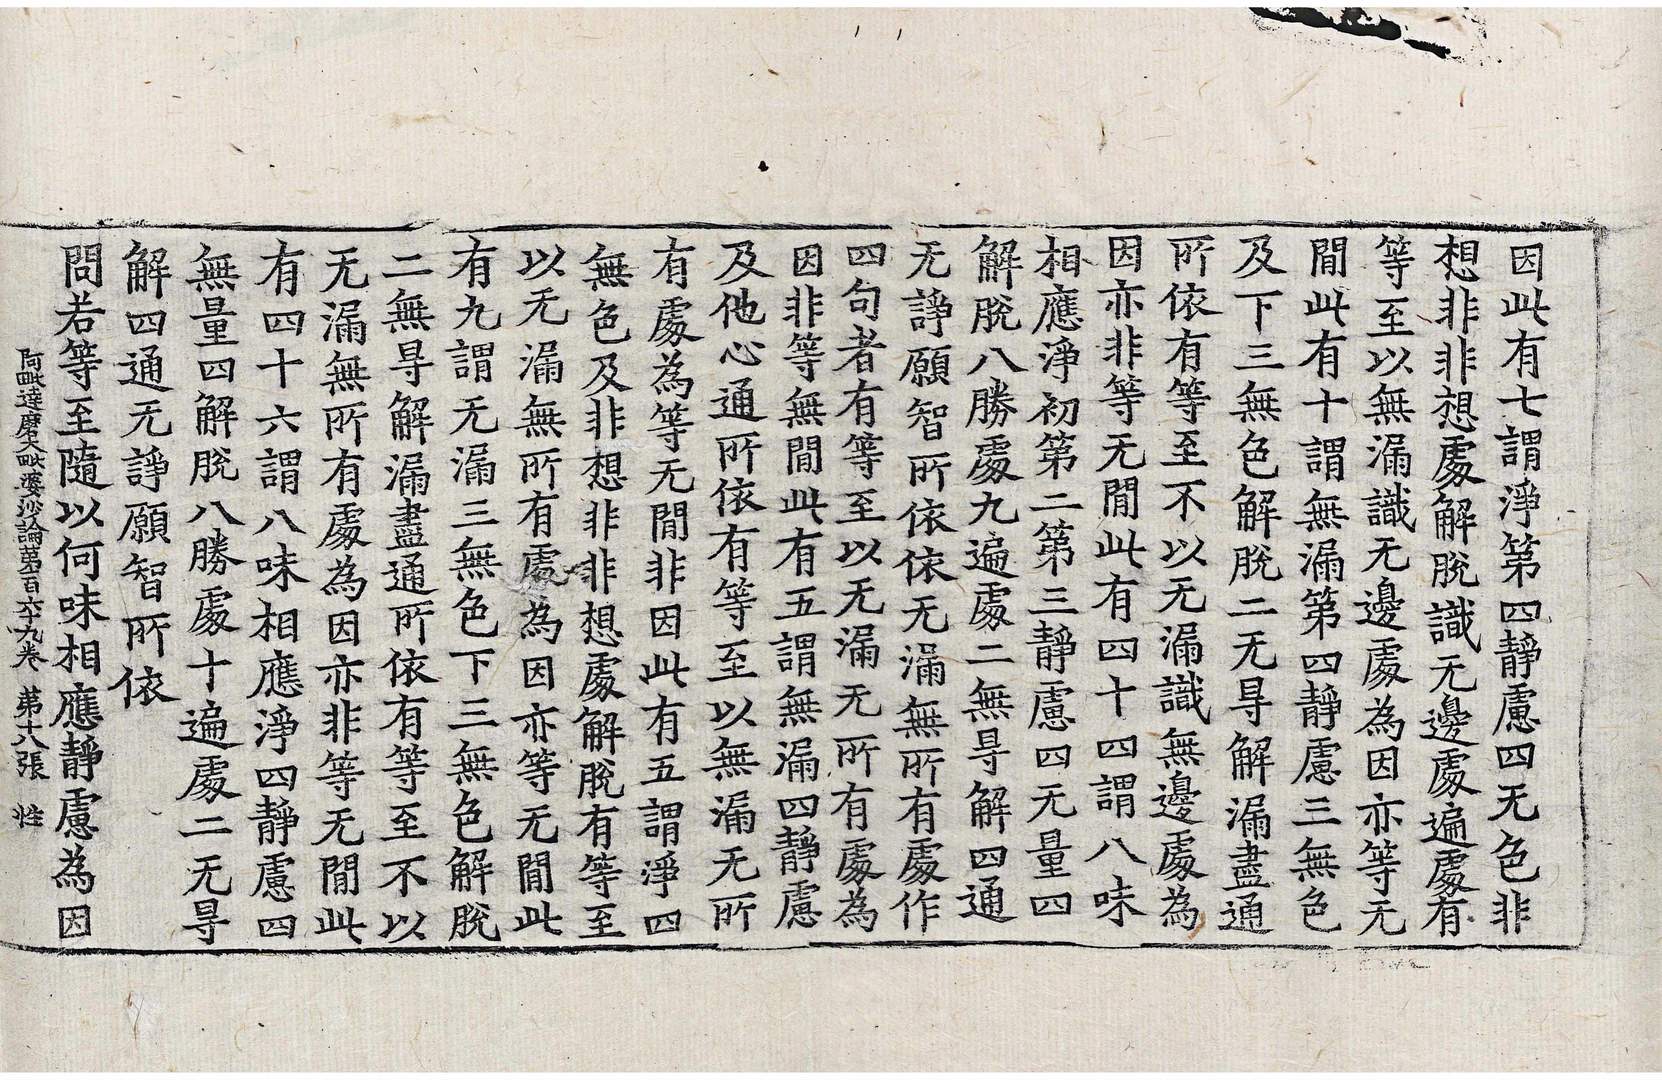 因此有七謂淨第四靜慮四无色非
想非非想處解脫識无邊處遍處有
等至以無漏識无邊處為因亦等无
閒此有十謂無漏第四靜慮三無色
及下三無色解脫二无㝵解漏盡通
所依有等至不以无漏識無邊處為
因亦非等无閒此有四十四謂八味
相應淨初第二第三靜慮四无量四
解脫八勝處九遍處二無㝵解四通
无諍願智所依依无漏無所有處作
四句者有等至以无漏无所有處為
因非等無閒此有五謂無漏四靜慮
及他心通所依有等至以無漏无所
有處為等无閒非因此有五謂淨四
無色及非想非非想處解脫有等至
以无漏無所有處為因亦等无閒此
有九謂无漏三無色下三無色解脫
二無㝵解漏盡通所依有等至不以
无漏無所有處為因亦非等无閒此
有四十六謂八味相應淨四靜慮四
無量四解脫八勝處十遍處二无㝵
解四通无諍願智所依
問若等至隨以何味相應靜慮為因
阿毗達磨大毗婆沙論第百六十九卷 第十八張 性